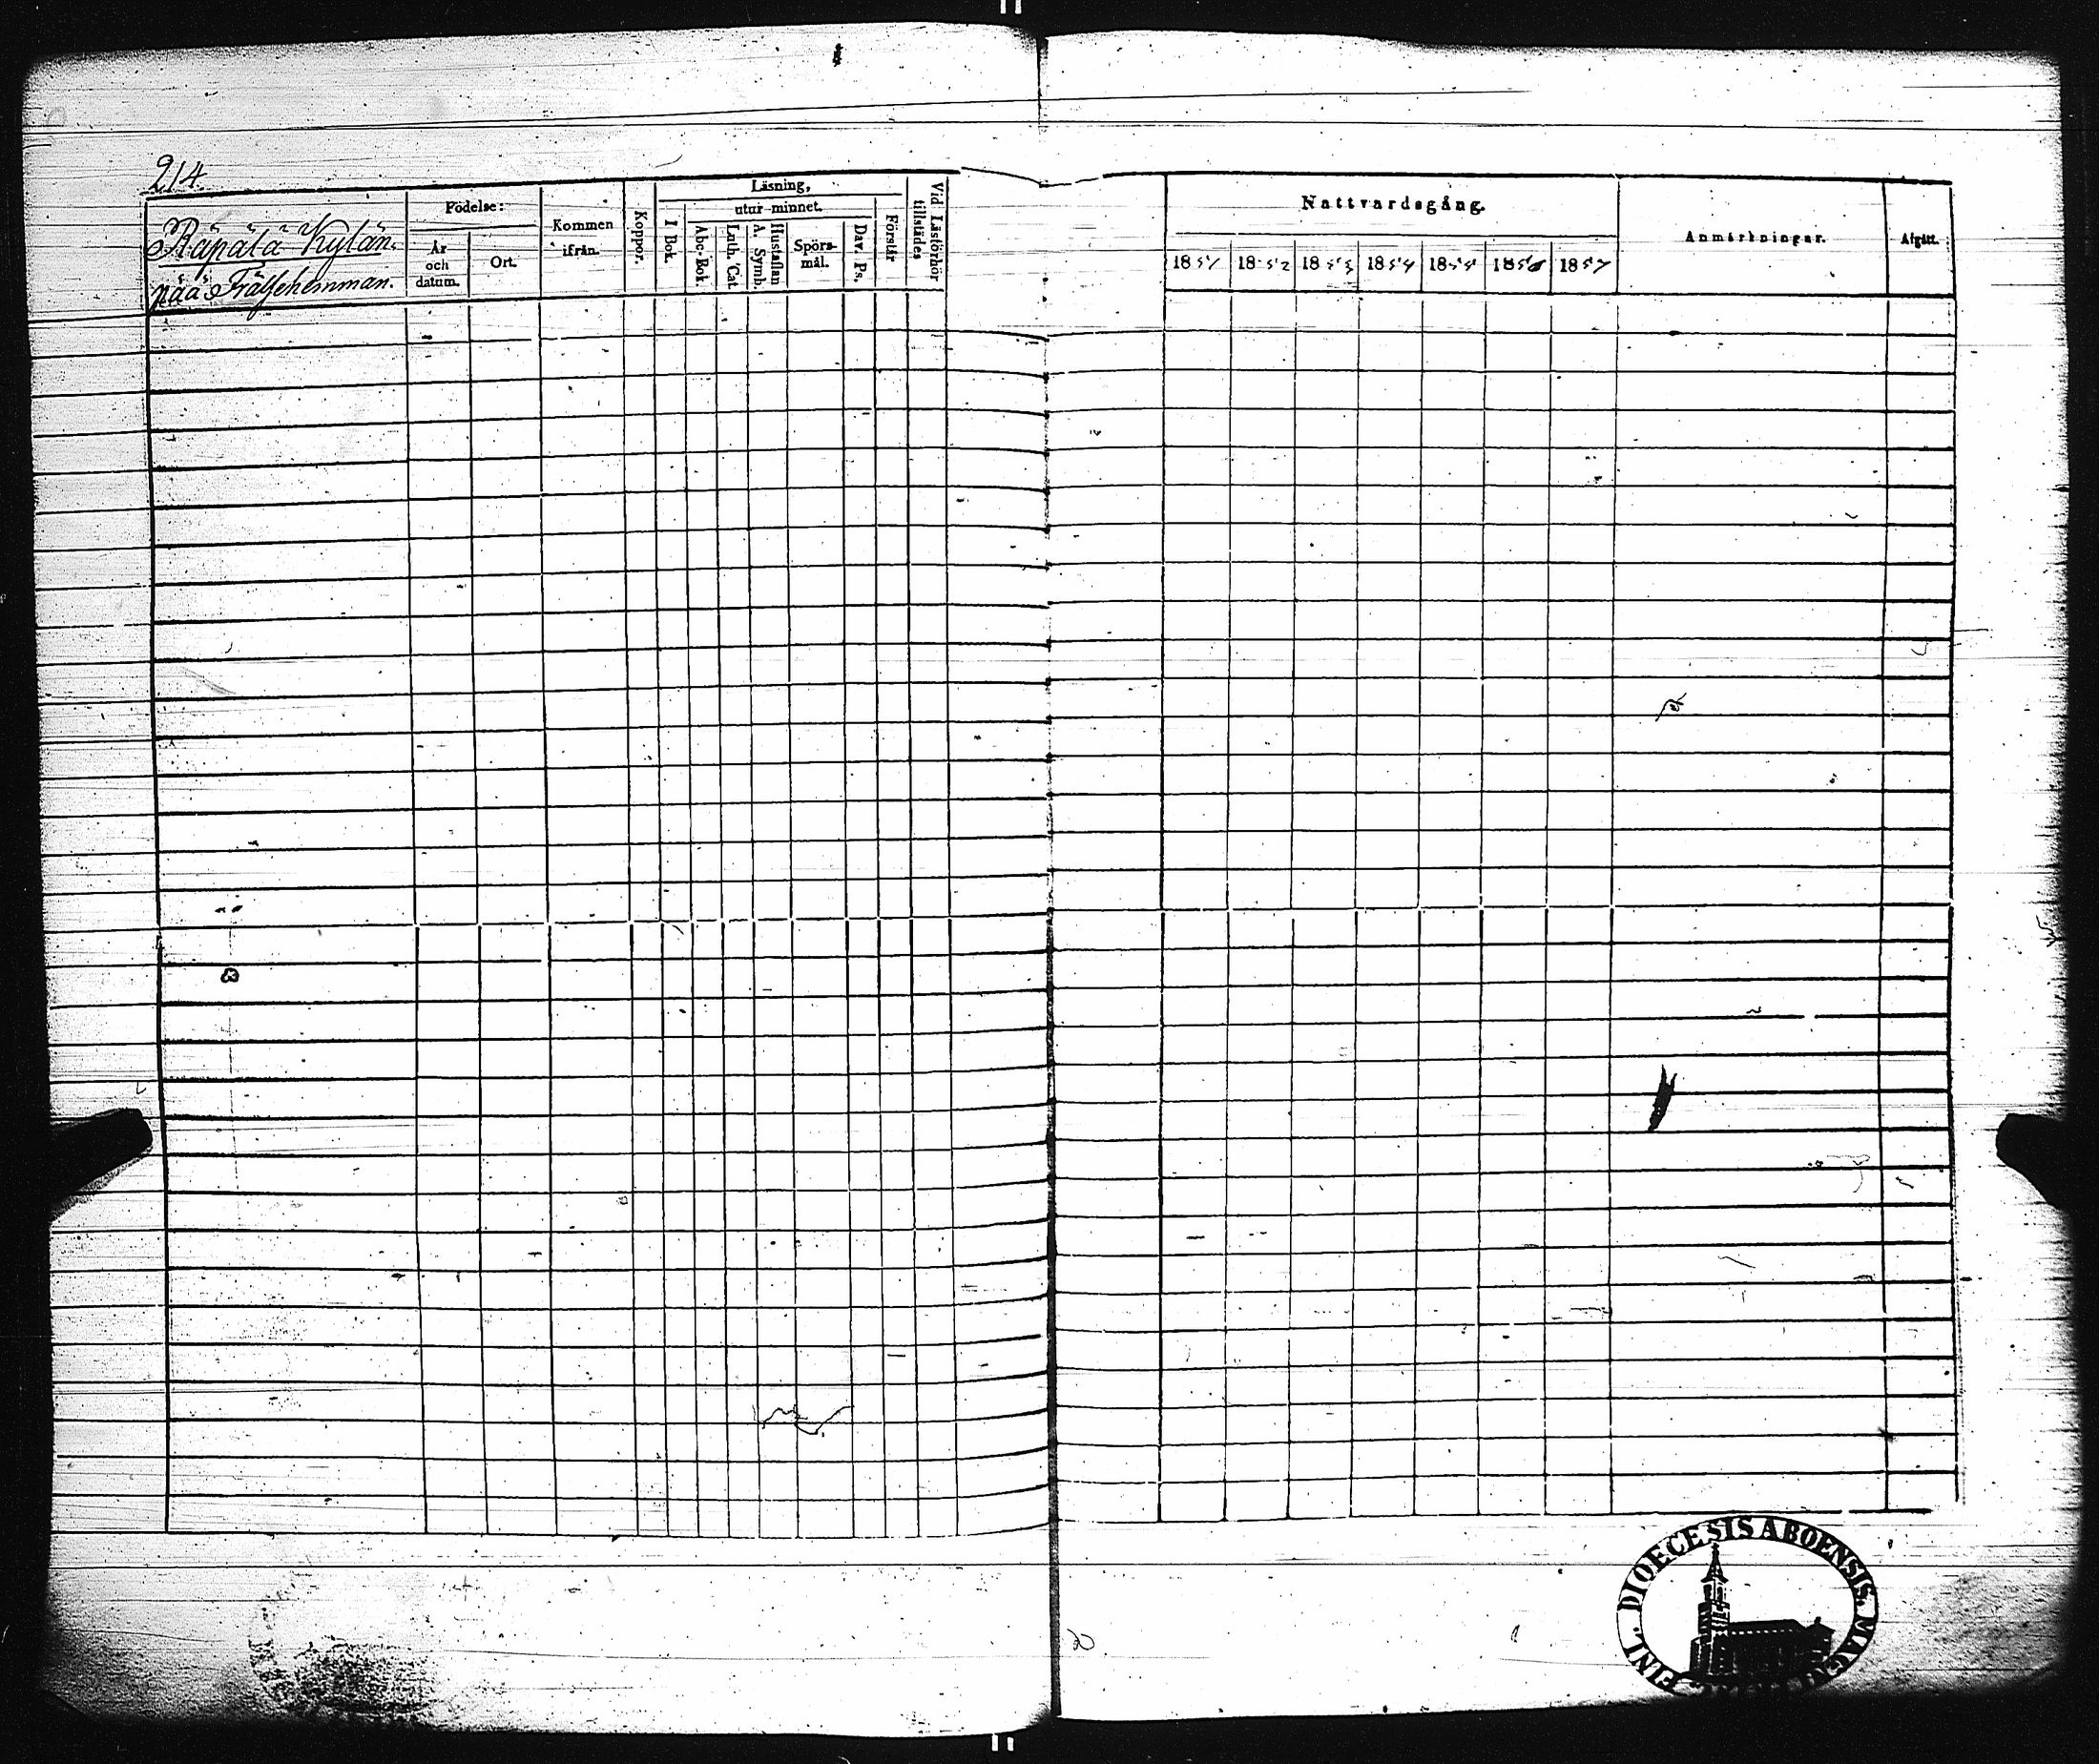 214.
Räpälä Kylän-
pää Frälsehemman.
Födelse:
År
och
datum.
Ort.
Kommen
ifrån.
Koppor.
Läsning,
I Bok.
utur minnet.
Abc-Bok.
Luth. Cat.
A. Symb.
Hustaflan
Spörs-
mål.
Dav. Ps.
Förstår
Vid Läsförhör
tillstädes
Nattvardsgång.
1851
1852
1853
1854
1855
1856
1857
Anmärkningar.
Afgått.
FINL. DIOECESIS ABOENSIS.